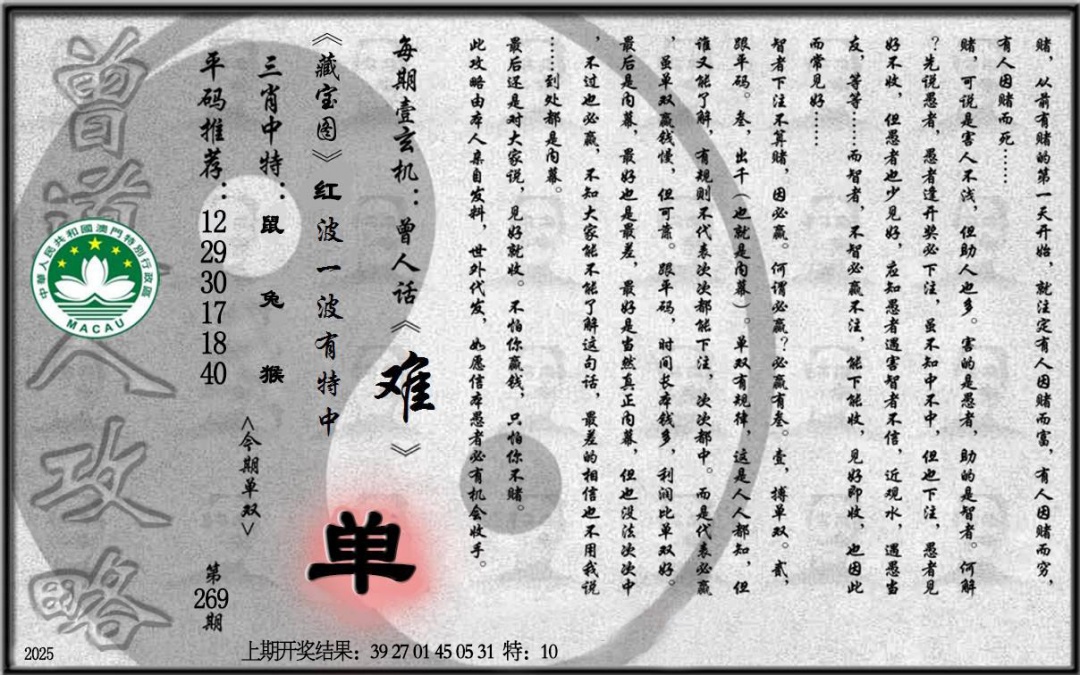 赌，从前有赌的第一天开始，就注定有人因赌而富，有人因赌而穷，
有人因赌而死……
赌，可说是害人不浅，但助人也多。害的是愚者，助的是智者。何解
？先说愚者，愚者逢开奖必下注，虽不知中不中，但也下注，愚者见
好不收，但愚者也少见好，应知愚者遇害智者不信，近观水，遇愚当
友，等等……而智者，不智必赢不注，能下能收，见好即收，也因此
而常见好……
智者下注不算赌，因必赢。何谓必赢？必赢有叁。壹，搏单双。贰，
跟单码。叁，出千（也就是内幕）。单双有规律，这是人人都知，但
谁又能了解，有规则不代表次次都能下注，次次都中。而是代表必赢
，虽单双赢钱慢，但可靠。跟单码，时间长本钱多，利润比单双好。
最后是内幕，最好也是最差，最好是当然真正内幕，但也没法次次中
，不过也必赢，不知大家能不能了解这句话，最差的相信也不用我说
……到处都是内幕。
最后还是对大家说，见好就收。不怕你赢钱，只怕你不赌。
此攻略由本人亲自发料，世外代发，如愿信本愚者必有机会收手。
每期壹玄机：曾人话《难》
《藏宝图》红波一波有特中
单
三肖中特：鼠 兔 猴
<今期单双>
平码推荐：12 29 30 17 18 40
第269期
曾道人攻略
中華人民共和國澳門特別行政區
MACAU
2025
上期开奖结果：39 27 01 45 05 31 特：10